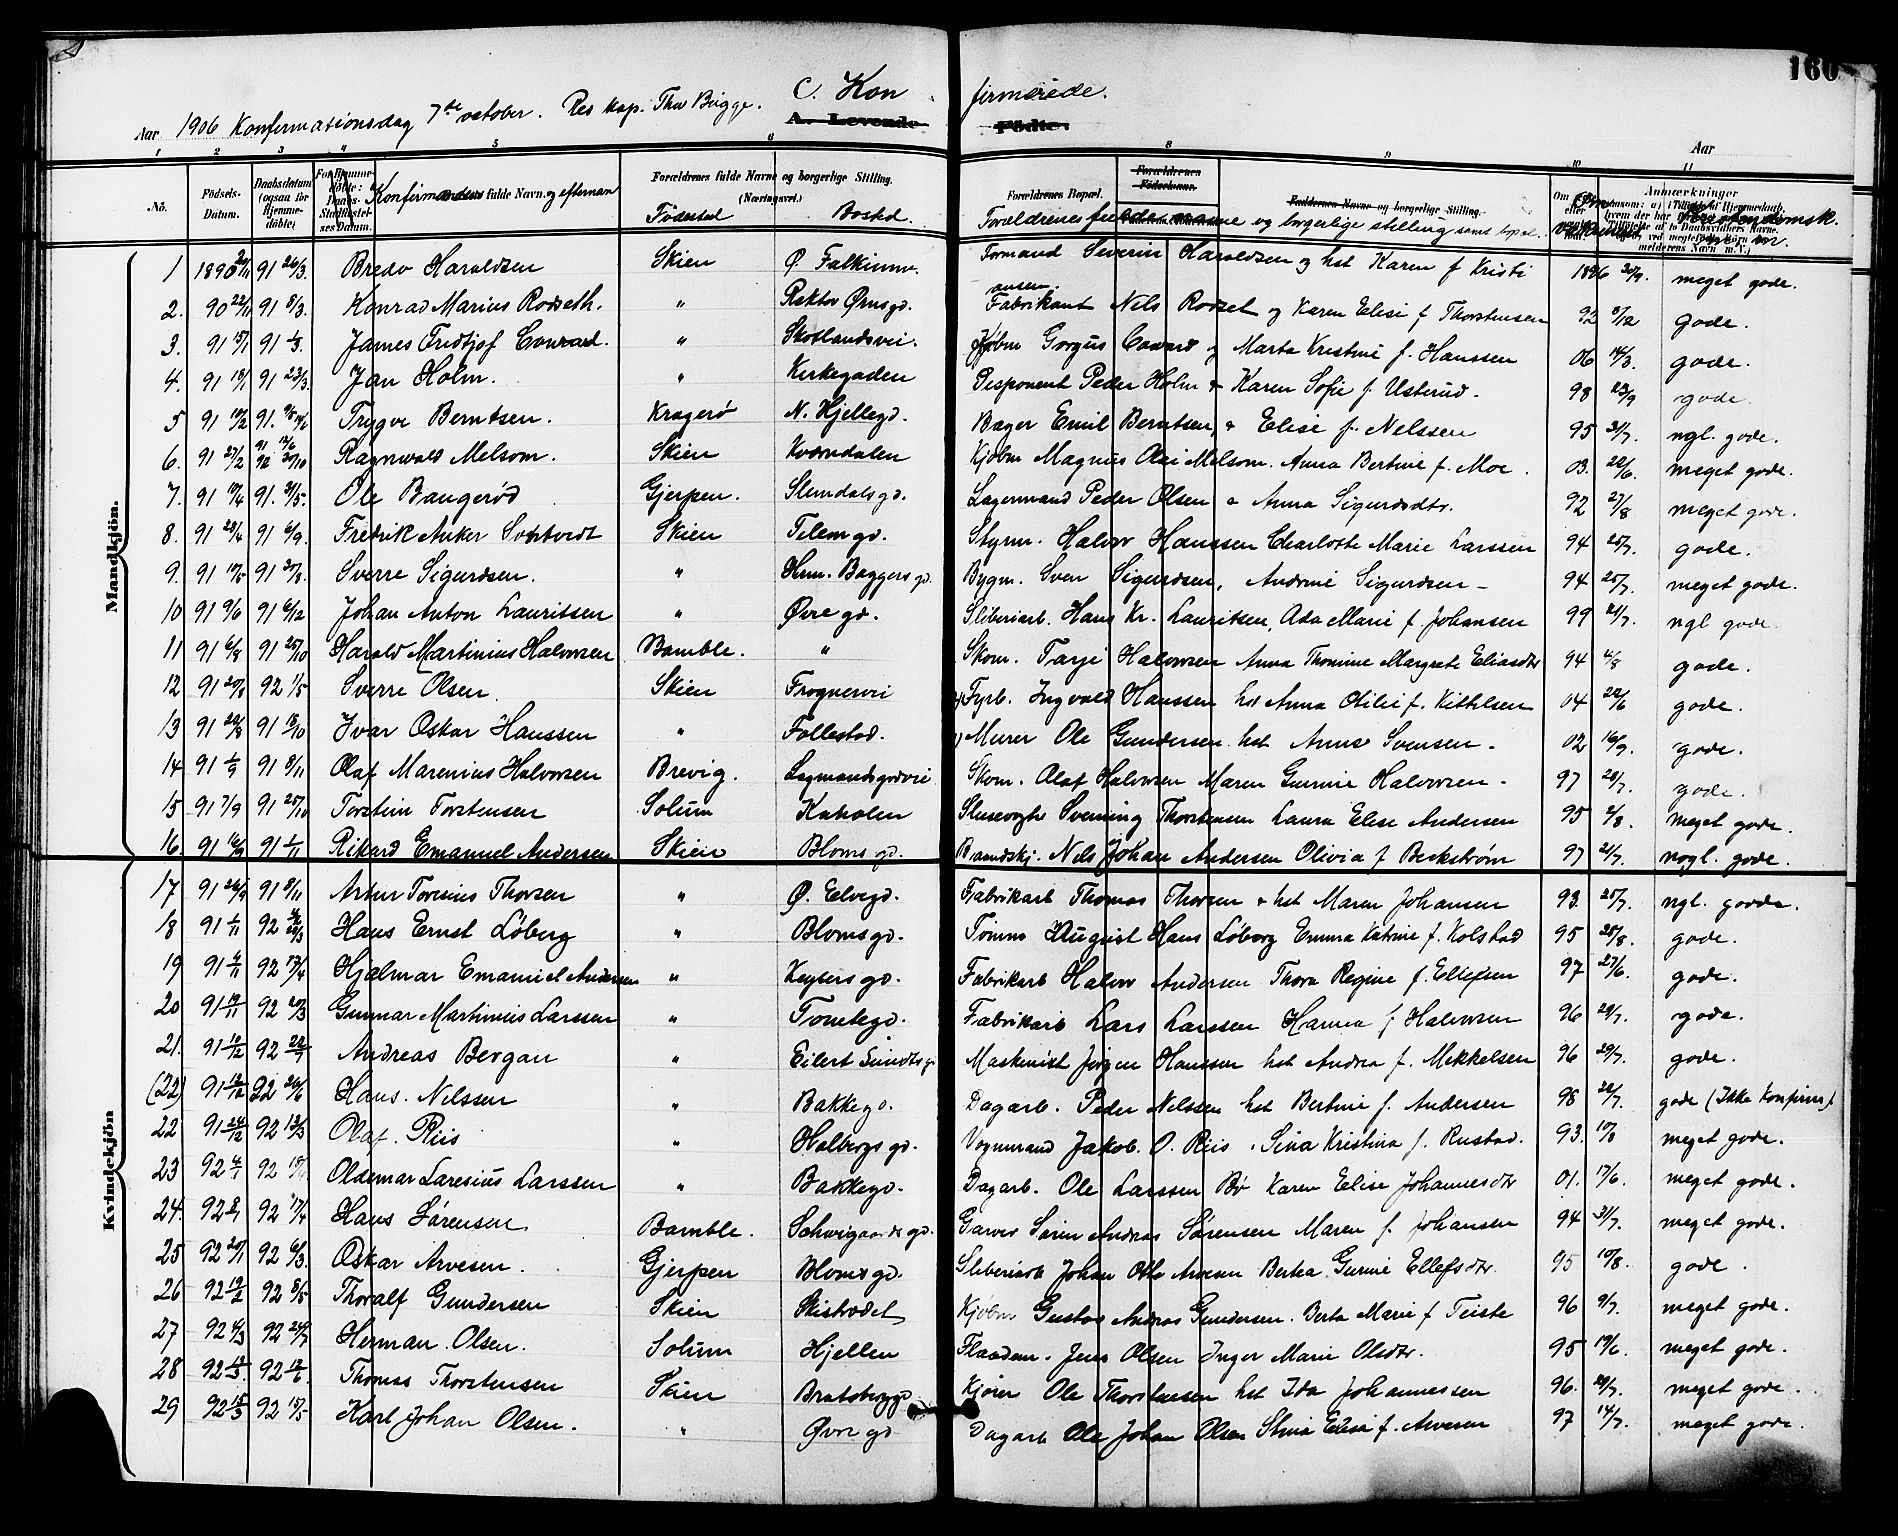 160
C. Konfirmerede.
Aar 1906 Konfirmationsdag 7de october. Res kap. Thv Bugge. A. Levende Födte. Aar
1 2 3 4 5 6 8 9 10 11
Nö. Födsels-Datum. Daabsdatum (ogsaa for Hjemmedöbte) Konfirmandens fulde Navn. og efternavn Forældrenes fulde Navne og borgerlige Stilling. (Næringsvei.) Fødested Bosted Forældrenes Bopæl. Forældrenes Födselsaar. Faddernes Navne og borgerlige Stilling. Forældrenes fulde navne og borgerlige stilling samt bopæl. Anmærkninger
Mandkjön.
1 1890 91 26/3 Bredo Haraldsen Skien Ø. Falkumv. Formand Severin Haraldsen og hst Karen f Kristiansen. 1896 meget gode.
2. 90 22/11 91 8/3 Konrad Marius Rodseth. " Rektor Ørnsgd. Fabrikant Nils Rodset og Karen Elise f Thorstensen 92 gode.
3. 91 15/1 91 1/3 James Fridtjof Conrad. " Skotlandsvei. Kjøbm Gorgus Conrad og Marta Kristine f. Hanssen 06 14/3 gode.
4. 91 18/1 91 23/3 Jan Holm. " Kirkegaden Disponent Peder Holm & Karen Sofie f. Usterud. 98 23/9 gode.
5 91 10/2 91. Trygve Berntsen. Kragerø N. Hjellegd. Bager Emil Berntsen, & Elise f. Nelssen 95 31/7 ngl. gode.
6. 91 27/2 Ragnvald Melsom. Skien Kværndalen Kjøbm Magnus Melsom. Anna Bertine f. Moe. 03. 22/6 meget gode.
7. 91 10/4 91. 31/5. Ole Baugerød Gjerpen. Slemdalsgd. Lagermand Peder Olsen & Anna Sigurdsdtr. 92 27/8 meget gode.
8. 91 28/4 91 6/9. Fredrik Anker Skien Telemgd. Styrm. Halvor Hanssen Charlotte Marie Larssen 94 25/7. gode.
9. 91 10/5 91 Sverre Sigurdsen. " Hrm. Baggers gd. Bygm. Sven Sigurdsen, Andrine Sigurdsen - 94 25/7. meget gode.
10 91 9/6 91 6/12 Johan Anton Lauritsen " Øvre gd. Sliberiarb. Hans Kr. Lauritsen, Ada Marie f. Johansen 99 21/7. ngl gode
11 91 6/8 91 25/10 Harald Martinius Halvorsen Bamble. " Skom. Tarje Halvorsen Anna Thomine Margrete Eliasdtr 94 4/8 gode.
12 91 20/8 92 1/5 Sverre Olsen. Skien Frognervei Fyrb. Ingvald Hanssen hst Anna Otilie f. Kittilsen 04 22/6 gode.
13 91 29/8 91 18/10 Ivar Oskar Hanssen " Follestad. Murer Ole Gundersen hst Anne Svensen - 02 16/9. gode.
14 91 1/9 91 8/11 Olaf Marenius Halvorsen Brevig. Lagmandsgdvei Skom. Olaf Halvorsen Maren Gurine Halvorsen - 97 28/7. gode.
15 91 7/9 91 25/10 Torstein Torstensen Solum Kaholen Slusevogte Svenning Thorstensen Laura Elise Andersen 95 2/8. meget gode.
16. 91 16/9 91 1/11 Rikard Emanuel Andersen Skien Bloms gd. Brandskj. Nels Johan Andersen Olivia f Beckstrøm 97 21/7. nogl. gode.
Kvindekjön
17 91 26/9 91 8/11 Artur Toresius Thorsen " Ø. Elvegd. Fabrikarb Thomas Thorsen & hst Maren Johansen 93. 25/7. ngl. goode.
18 91 1/11 92 Hans Ernst Løberg " Blomsgd. August Hans Løberg Emma Katrine f. Kolstad 95 25/8. gode.
19 91 4/11 92 Hjalmar Emanuel Andersen " Keysers gd. Fabrikarb Halvor Andersen Thora Regine f. Ellefsen 97 27/6. gode.
20 91 19/11 92 20/3 Gunnar Martinius Larssen " Tomtegd. Fabrikarb Lars Larssen Hanna f Halvorsen 96 29/7. gode.
21. 91 10/12 92 Andreas Bergan " Eilert Sundtsg. Maskinist Jørgen Hanssen hst Andrea f. Mekkelsen 96 29/7. gode.
(22) 91 12/12 92 26/6 Hans. Nelssen " Bakkegd. Dagarb. Peder Nelssen hst Bertine f. Andersen 98 22/7. gode (Ikke konfirm.)
22 91 24/12 92 13/3 Olaf. Riis " Holbergs gd. Vognmand Jakob. O. Riis. Sina Kristina f. Rustad. 93. 10/8 meget gode.
23 92 4/1 92 Oldemar Laresius Larssen " Bakkegd. Dagarb. Ole Larssen Bø Karen Elise Johannesdtr 01. 17/6. meget gode.
24. 92 8/1 92 17/4 Hans Sørensen Bamble. Schweigaards gd. Garver Søren Andreas Sørensen Maren f. Johansen 94 31/7. meget gode.
25 92 20/1 92 6/3. Oskar Arvesen. Gjerpen Blomsgd. Sliberiarb Johan Otto Arvesen Bertea Gurine Ellefsdtr. 95 10/8. gode.
26 92 19/2 92 8/5 Thoralf Gundersen Skien Skistredet Kjøbm Gustav Andreas Gundersen. Berta Marie f Teiste 96 9/7. meget gode.
27 92 4/3 92 24/7 Herman Olsen. Solum Hjellen Flaadem. Jens Olsen Inger Marie Olsdtr. 95 19/6. meget gode.
28 92 13/3. 92 12/6. Thomas Thorstensen Skien Bratsberggd. Kjører Ole Thorstensen hst Ida Johannessen 96. 20/7. meget gode.
29 92 15/3 92 15/5 Karl Johan Olsen. " Øvre gd Dagarb Ole Johan Olsen Stina Elise f. Arvesen 97 14/7. meget gode.